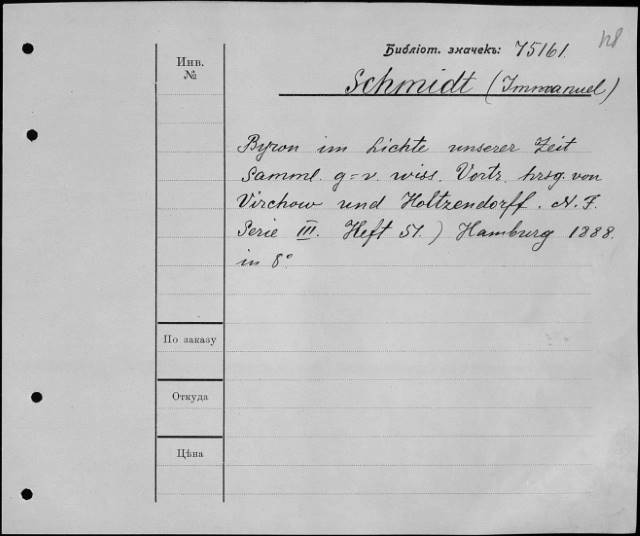 Библіот. значекъ: 75161.
Инв.
№
Schmidt (Immanuel)
Byron im Lichte unserer Zeit
Samml. g=v. wiss. Vortr. hrsg. von
Virchow und Holtzendorff. N. F.
Serie III. Heft 51.) Hamburg 1888.
in 8°
По заказу
Откуда
Цѣна